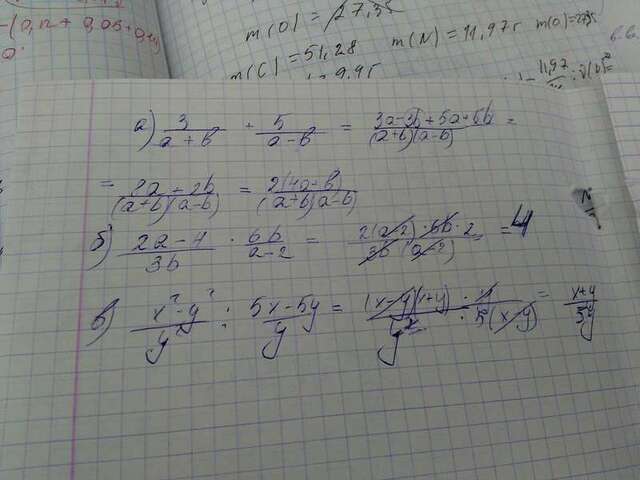 -(0,12 + 0,05 + 0,
m(O) = 27,35
m(C) = 51,28
m(N) = 11,97г
9,9г
11,97
а) 3/(a + b) + 5/(a - b) = (3a - 3b + 5a + 5b)/((a+b)(a-b)) =
= (8a + 2b)/((a+b)(a-b)) = 2(4a + b)/((a+b)(a-b))
б) (2a - 4)/3b · 6b/(a - 2) = (2(a-2) · 6b · 2)/(3b (a-2)) = 4
в) (x² - y²)/y² : (5x - 5y)/y = ((x-y)(x+y) · y)/(y² · 5(x-y)) = (x+y)/5y